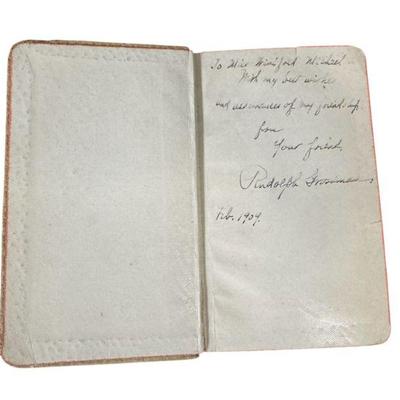 To Miss Winifred Michael
With my best wishes
and assurances of my friendship
from
Your friend,
Rudolph Grossman,
Feb. 1909.